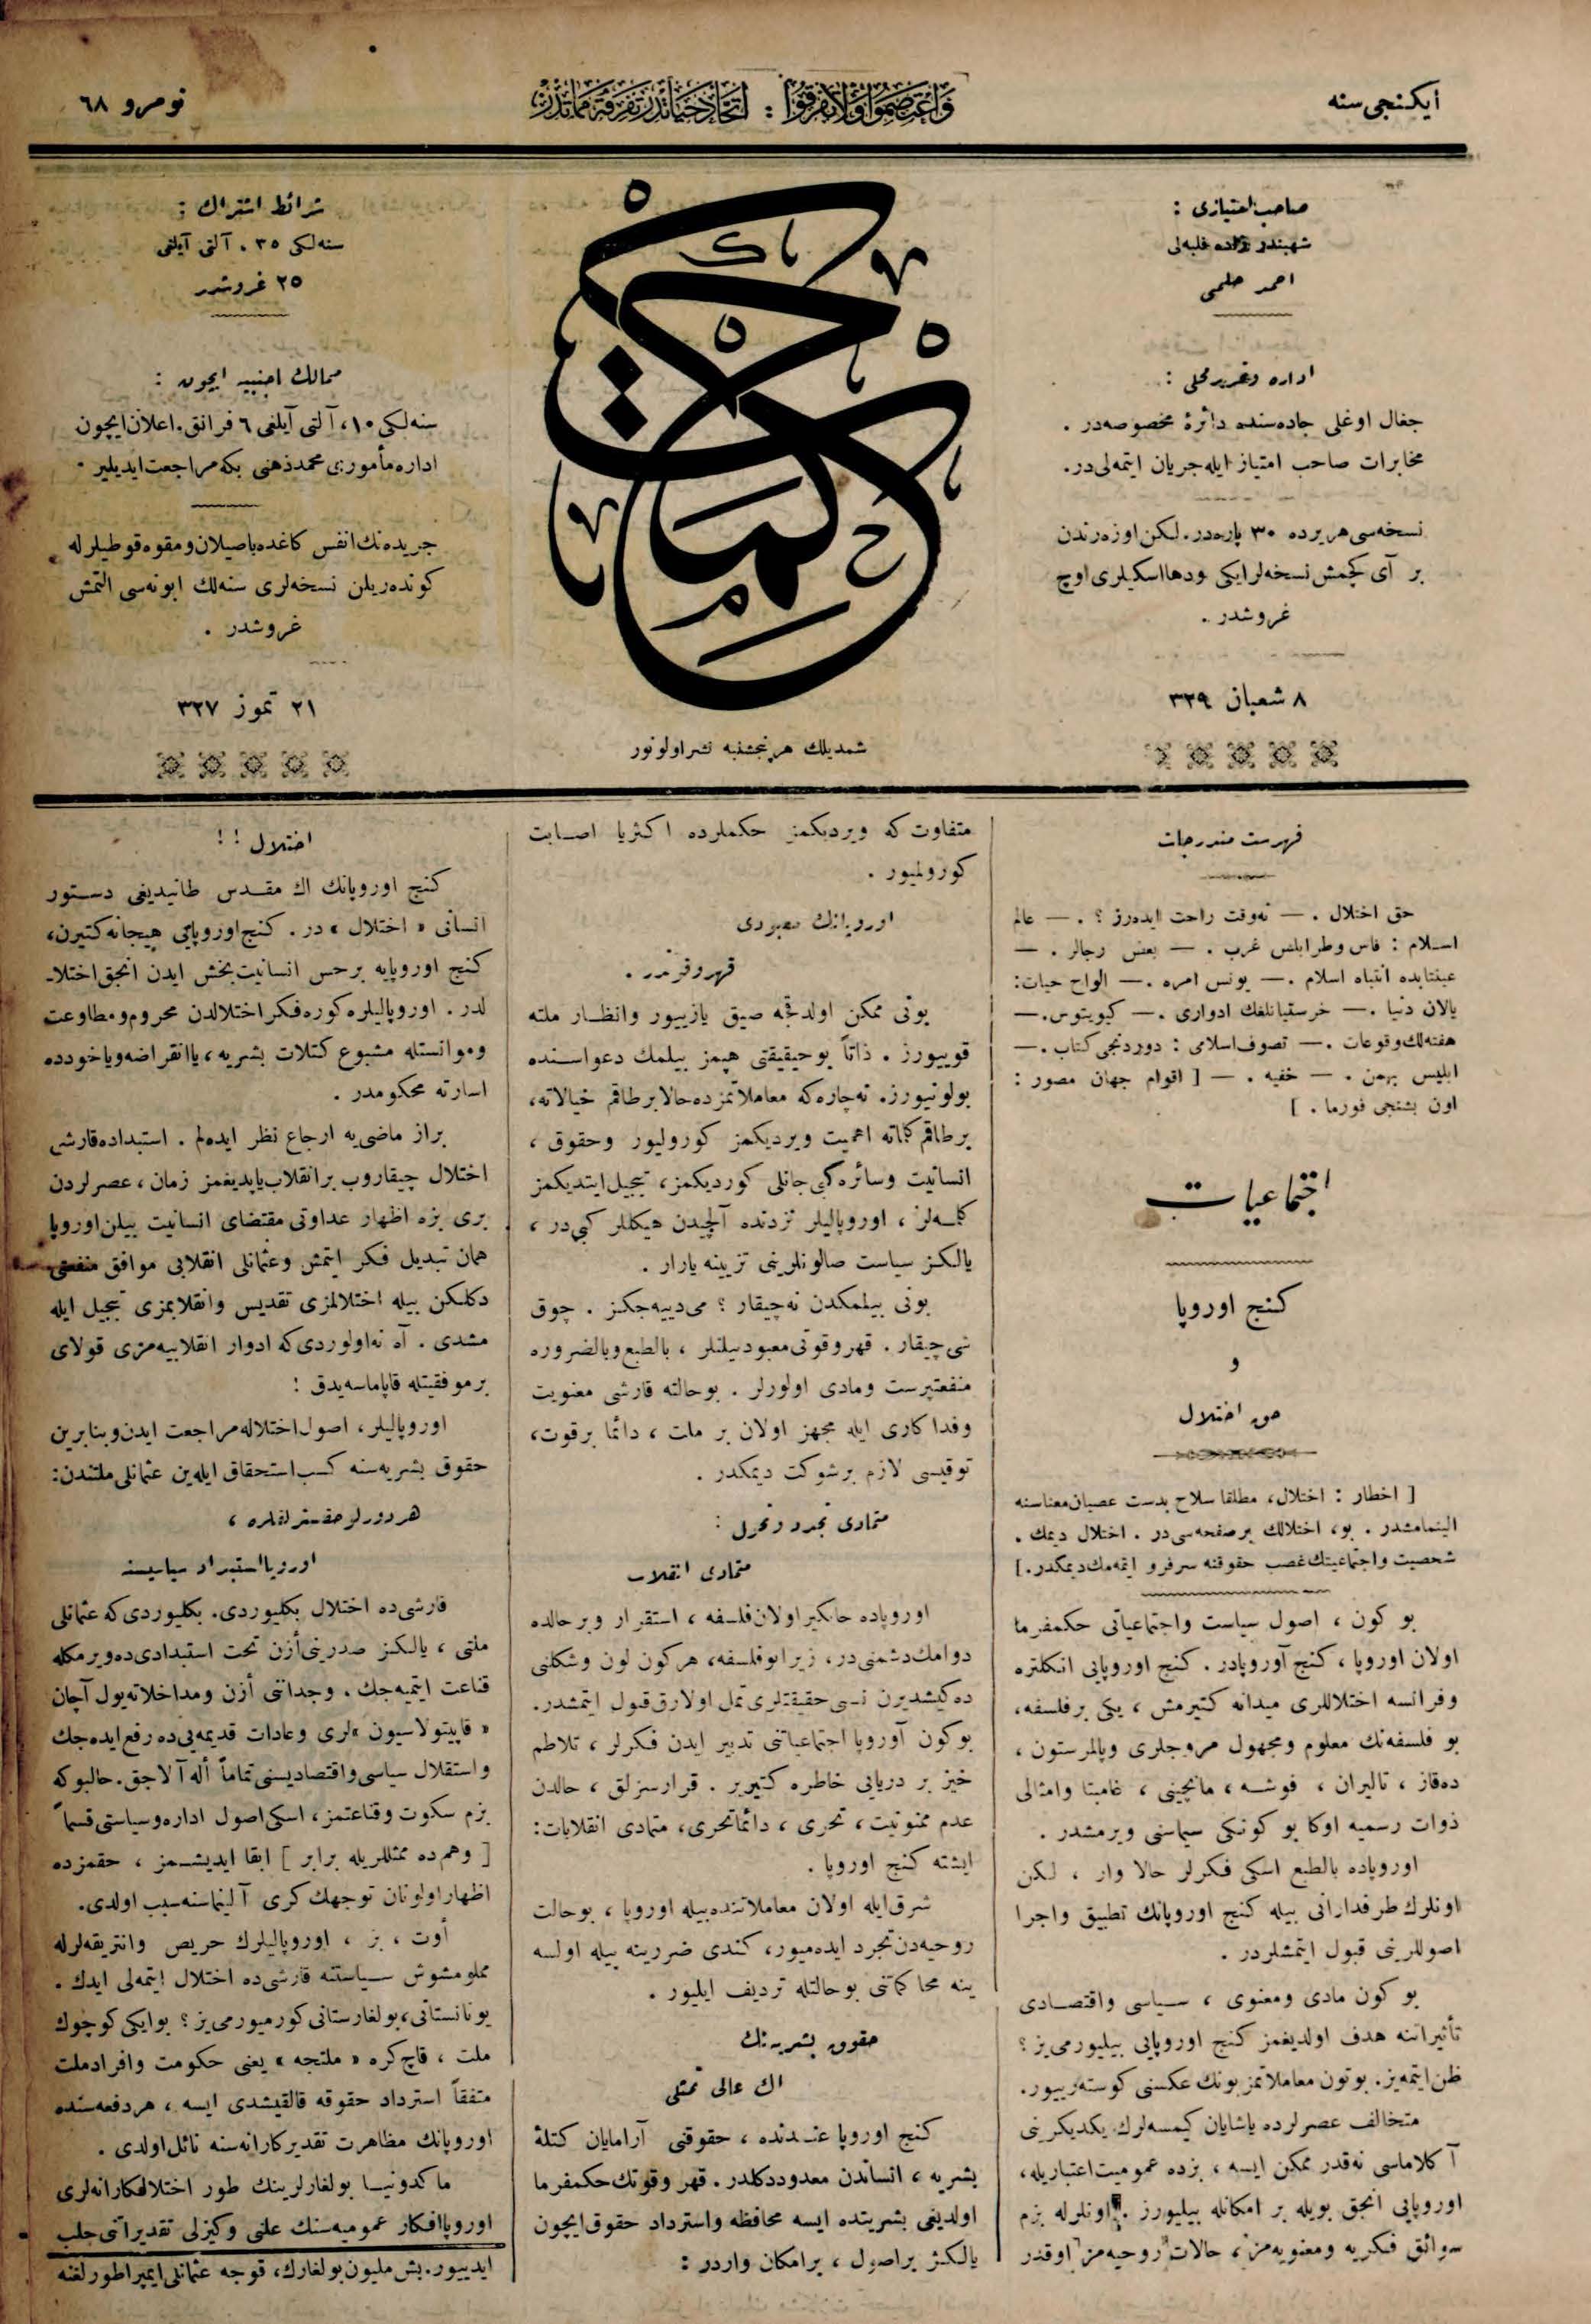 ايكنجى سنه
واعتصموا ولا تفرقوا : اتحاد حياتدر تفرقه مماتدر
نومرو ٦٨
صاحب امتيازى :
شهبندر زاده فلبه‌لى
احمد حلمى
اداره وتحرير محلى :
جغال اوغلى جاده‌سنده دائرۀ مخصوصه‌در .
مخابرات صاحب امتياز ايله جريان ايتمه‌لى‌در.
نسخه‌سى هر يرده ٣٠ پاره‌در. لكن اوزه‌رندن
بر آى كچمش نسخه‌لر ايكى ودها اسكيلرى اوچ
غروشدر .
٨ شعبان ٣٢٩
حكمت
شمديلك هر پنجشنبه نشر اولونور
شرائط اشتراك :
سنه‌لكى ٣٥ ، آلتى آيلغى
٢٥ غروشدر
ممالك اجنبيه ايچون :
سنه‌لكى ١٠، آلتى آيلغى ٦ فرانق. اعلان ايچون
اداره مأمورى محمد ذهنى بكه مراجعت ايديلير .
جريده‌نك انفس كاغده باصيلان ومقوه قوطيلرله
كوندەريلن نسخه‌لرى سنه‌لك ابونه‌سى التمش
غروشدر .
٢١ تموز ٣٢٧
فهرست مندرجات
حق اختلال . — نه‌وقت راحت ايده‌رز ؟ . — عالم
اسلام : فاس وطرابلس غرب . — بعض رجالر . —
عينتابده انتباه اسلام .— يونس امره .— الواح حيات:
يالان دنيا .— خرستيانلغك ادوارى .— كيويتوس.—
هفته‌لك وقوعات .— تصوف اسلامى : دوردنجى كتاب .—
ابليس بهمن . — خفيه . — [ اقوام جهان مصور :
اون بشنجى فورما . ]
اجتماعيات
كنج اوروپا
و
حق اختلال
[ اخطار : اختلال، مطلقا سلاح بدست عصيان معناسنه
الينمامشدر . بو، اختلالك بر صفحه‌سى در . اختلال ديمك .
شخصيت واجتماعيتك غصب حقوقنه سرفرو ايتمه‌مك ديمكدر.]
بو كون ، اصول سياست واجتماعياتى حكمفرما
اولان اوروپا ، كنج آوروپادر. كنج اوروپايى انكلتره
وفرانسه اختلاللرى ميدانه كتيرمش ، يكى بر فلسفه،
بو فلسفه‌نك معلوم ومجهول مروجلرى وپالمرستون ،
ده‌قاز ، تاليران ، فوشه ، مانچينى ، غامبتا وامثالى
ذوات رسميه اوكا بو كونكى سيماسنى ويرمشدر .
اوروپاده بالطبع اسكى فكرلر حالا وار ، لكن
اونلرك طرفدارانى بيله كنج اوروپانك تطبيق واجرا
اصوللرينى قبول ايتمشلردر .
بو كون مادى ومعنوى ، سياسى واقتصادى
تأثيراتنه هدف اولديغمز كنج اوروپايى بيليورمى‌يز ؟
ظن ايتمه‌يز. بوتون معاملاتمز بونك عكسنى كوسته‌رييور.
متخالف عصرلرده ياشايان كيمسه‌لرك يكديكرينى
آكلاماسى نه‌قدر ممكن ايسه ، بزده عموميت اعتباريله،
اوروپايى انجق بويله بر امكانله بيليورز . اونلرله بزم
سوائق فكريه ومعنويه‌مز ، حالات روحيه‌مز اوقدر
متفاوت كه ويرديكمز حكملرده اكثريا اصابت
كورولميور .
اوروپانك معبودى
قهر وقوتدر .
بونى ممكن اولدقجه صيق يازييور وانظار ملته
قوييورز . ذاتاً بو حقيقتى هپمز بيلمك دعواسنده
بولونيورز. نه‌چاره كه معاملاتمزده حالا بر طاقم خيالاته،
بر طاقم كلماته اهميت ويرديكمز كوروليور وحقوق ،
انسانيت وسائره كبى جانلى كورديكمز، تبجيل ايتديكمز
كلمه‌لر ، اوروپاليلر نزدنده آلچيدن هيكللر كبى‌در ،
يالكز سياست صالونلرينى تزيينه يارار .
بونى بيلمكدن نه چيقار ؟ مى دييه‌جكز . چوق
شى چيقار . قهر وقوتى معبود بيلنلر ، بالطبع وبالضروره
منفعتپرست ومادى اولورلر . بو حالته قارشى معنويت
وفداكارى ايله مجهز اولان بر ملت ، دائما بر قوت،
توقيسى لازم بر شوكت ديمكدر .
متمادى تجدد وتحول :
متمادى انقلاب
اوروپاده جايكير اولان فلسفه ، استقرار وبر حالده
دوامك دشمنى در، زيرا بو فلسفه، هر كون لون وشكلنى
ده‌كيشديرن نسبى حقيقتلرى تمل اولارق قبول ايتمشدر.
بو كون آوروپا اجتماعياتنى تدبير ايدن فكرلر ، تلاطم
خيز بر دريايى خاطره كتيرير . قرارسزلق ، حالدن
عدم ممنونيت، تحرى ، دائما تحرى، متمادى انقلابات:
ايشته كنج اوروپا .
شرق ايله اولان معاملاتنده بيله اوروپا ، بو حالت
روحيه‌دن تجرد ايده‌ميور، كندى ضررينه بيله اولسه
ينه محاكماتنى بو حالتله ترديف ايليور .
حقوق بشريه‌نك
اك عالى تمثلى
كنج اوروپا عندنده ، حقوقنى آرامايان كتلۀ
بشريه ، انساندن معدود دكلدر. قهر وقوتك حكمفرما
اولديغى بشريتده ايسه محافظه واسترداد حقوق ايچون
يالكز بر اصول ، بر امكان واردر :
اختلال !!
كنج اوروپانك اك مقدس طانيديغى دستور
انسانى « اختلال » در . كنج اوروپايى هيجانه كتيرن،
كنج اوروپايه بر حس انسانيت بخش ايدن انجق اختلا-
لدر . اوروپاليلره كوره فكر اختلالدن محروم ومطاوعت
وموانستله مشبوع كتلات بشريه ، يا انقراضه ويا خود ده
اسارته محكومدر .
براز ماضى‌يه ارجاع نظر ايده‌لم . استبداده قارشى
اختلال چيقاروب بر انقلاب ياپديغمز زمان ، عصرلردن
برى بزه اظهار عداوتى مقتضاى انسانيت بيلن اوروپا
همان تبديل فكر ايتمش وعثمانلى انقلابى موافق منفعتى
دكلكن بيله اختلالمزى تقديس وانقلابمزى تبجيل ايله
مشدى . آه نه اولوردى كه ادوار انقلابيه‌مزى قولاى
بر موفقيتله قاپاماسه‌يدق !
اوروپاليلر، اصول اختلاله مراجعت ايدن وبنابرين
حقوق بشريه‌سنه كسب استحقاق ايله‌ين عثمانلى ملتندن:
هر دورلو حقسزلقلره ،
اوروپا استبداد سياسيسنه
قارشى ده اختلال بكليوردى. بكليوردى كه عثمانلى
ملتى ، يالكز صدرينى أزن تحت استبدادى ده‌ويرمكله
قناعت ايتميه‌جك . وجداننى أزن ومداخلاته يول آچان
« قاپيتولاسيون »لرى وعادات قديمه‌يى ده رفع ايده‌جك
واستقلال سياسى واقتصاديسنى تماماً أله آلاجق. حالبوكه
بزم سكوت وقناعتمز، اسكى اصول اداره وسياستى قسماً
[ وهم ده ممثللريله برابر ] ابقا ايديشمز ، حقمزده
اظهار اولونان توجهك كرى آلينماسنه سبب اولدى.
أوت ، بز ، اوروپاليلرك حريص وانتريقه‌لرله
مملو مشوش سياستنه قارشى ده اختلال ايتمه‌لى ايدك .
يونانستانى، بولغارستانى كورميورمى‌يز ؟ بو ايكى كوچوك
ملت ، قاچ كره « ملتجه » يعنى حكومت وافراد ملت
متفقاً استرداد حقوقه قالقيشدى ايسه ، هر دفعه‌سنده
اوروپانك مظاهرت تقديركارانه‌سنه نائل اولدى .
ماكدونيا بولغارلرينك طور اختلالكارانه‌لرى
اوروپا افكار عموميه‌سنك علنى وكيزلى تقديراتنى جلب
ايدييور. بش مليون بولغارك، قوجه عثمانلى ايمپراطورلغنه